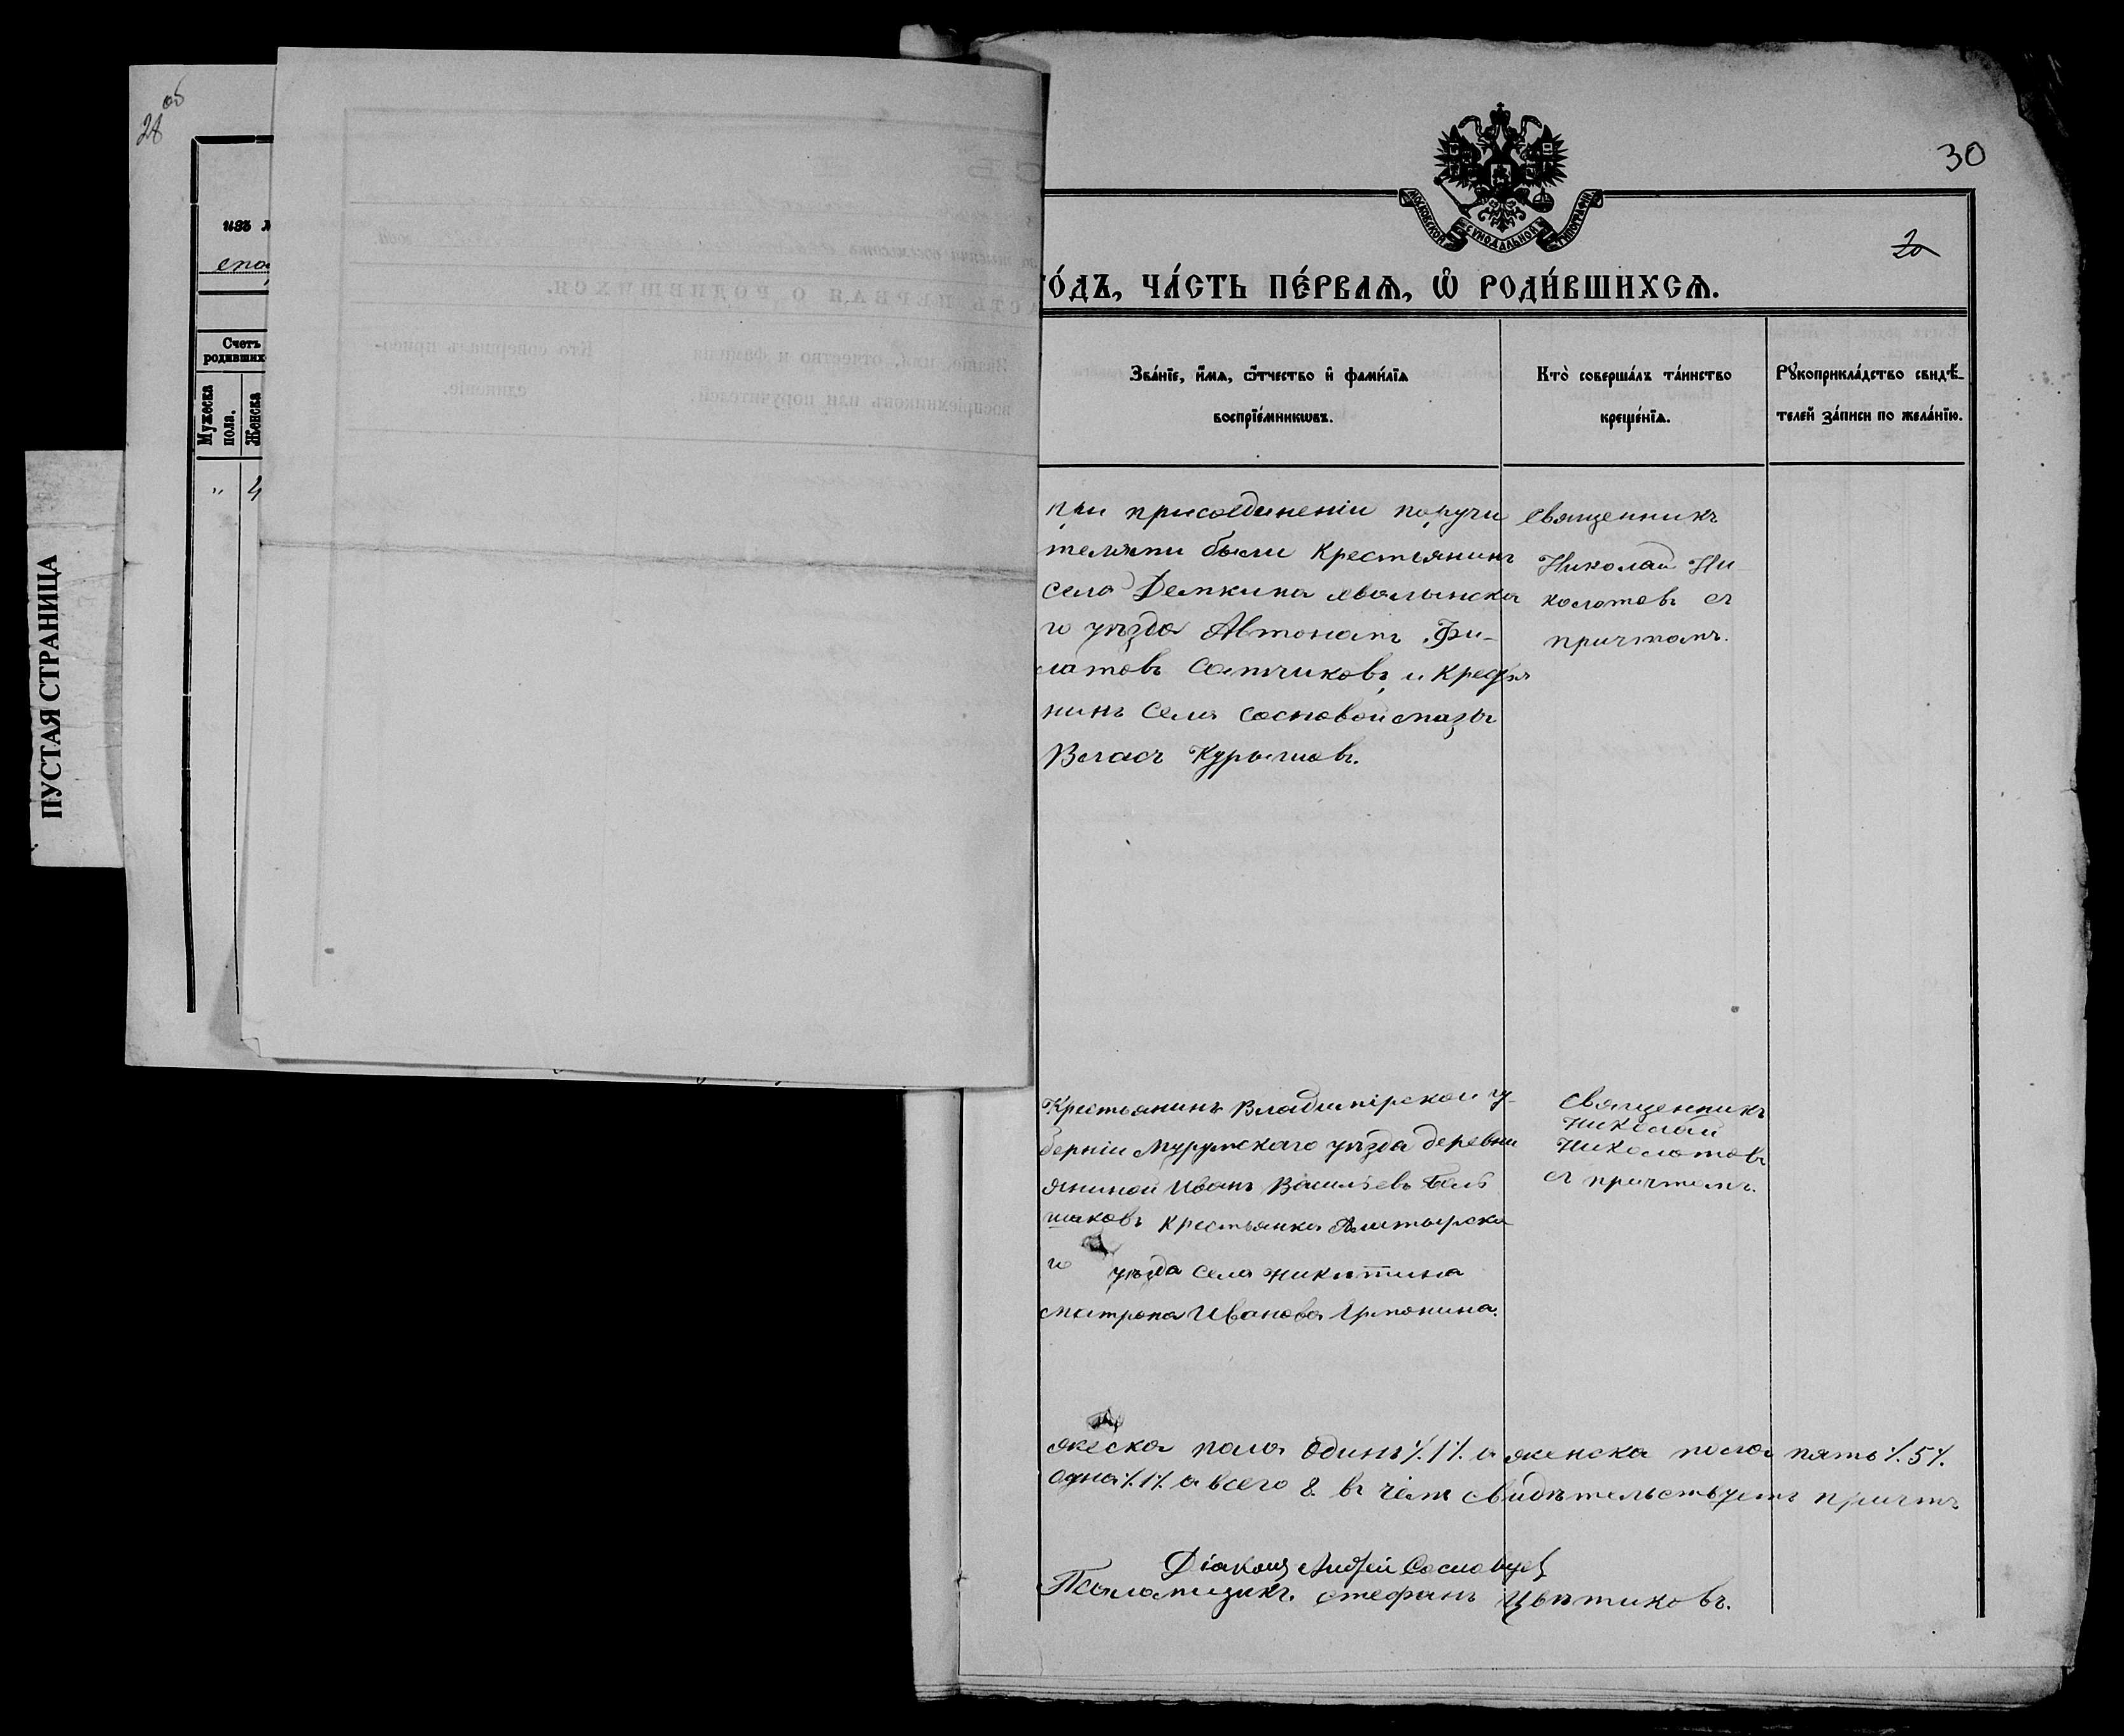 ПУСТАЯ СТРАНИЦА
28 об
изъ
спа
Счетъ
родивших
Мужеска
пола.
Женска
" 4
30
МОСКОВСКОЙ СѴНОДАЛЬНОЙ ТИПОГРАФІИ
20
го́дъ, ча́сть пе́рваѧ, ѡ҆ роди́вшихсѧ.
Зва́нїе, и҆́мѧ, ѻ҆́тчество и҆ фами́лїѧ
воспрїе́мникѡвъ.
Кто̀ соверша́лъ та́инство
креще́нїѧ.
Рꙋкоприкла́дство свидѣ́-
телей за́писи по жела́нїю.
при присоединеніи поручи
телями были Крестьянинъ
села Демкина хвалынска
го уѣзда Автономъ Фи-
латовъ Сотчиковъ, и Крестья
нинъ Села Сосновой мазы
Власъ Курышовъ.
Священникъ
Николай Ни-
колотовъ съ
причтомъ.
Крестьянинъ Владимірской гу-
берніи Муромскаго уѣзда деревни
Иванъ Васильевъ Боль
шаковъ крестьянка Алатырска
го уѣзда села Никитина
Матрона Иванова Ермонина.
Священникъ
Николай
Николотовъ
съ причтомъ.
жеска пола одинъ ٪1٪ а женска пола пять ٪5٪
одна ٪1٪ а всего 8. въ чемъ свидѣтельствуетъ причтъ
Діаконъ Андрей Сосновцев
Псаломщикъ. Стефанъ Цвѣтиковъ.